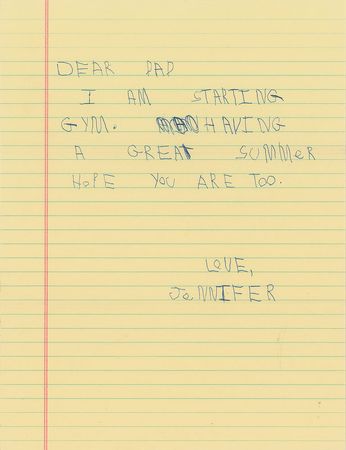 DEAR DAD
I AM STARTING
GYM. HAVING
A GREAT SUMMeR
HOPE YOU ARE TOO.
LOVE,
JeNNIFER